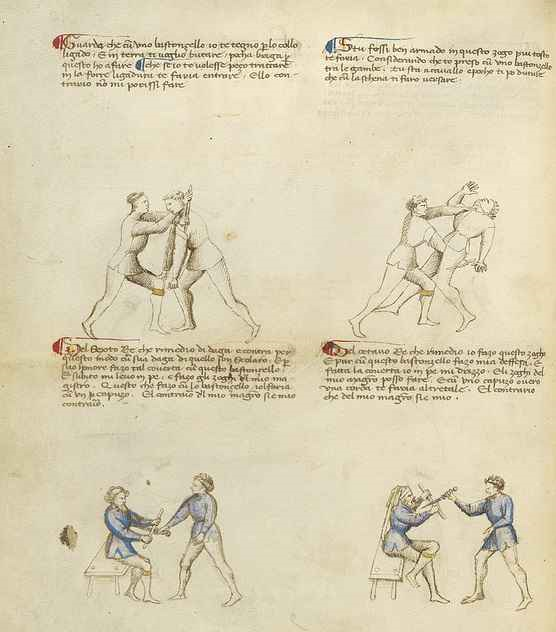 Guarda che cu uno bastonzello io te tegno p lo collo
ligado. E in terra ti voglio butare, pocha briga o
questo ho a fare. E che se io te volesse pezo tractare
in la forte ligadura te faria entrare. Ello con-
trario no mi porissi fare
Si tu fossi ben armado in questo zogo piu tosto
te faria. Considerando che to preso cu uno bastonzello
tra le gambe. Tu sta a cavallo epocho ti po durare
che cu la schena ti faro versare
Del Sexto Re che rimedio di daga e contra per
questo modo cu sua daga. Di quello son scolaro. E p
suo honore fazo tal coverta cu questo bastonzello.
E subito mi levo in pe. e fazo gli zoghi dl mio ma
gistro. Questo che fazo cu lo bastonzello io lo faria
cu un capuzo. El contrario dl mio magro sie mio
contrario.
Del octavo Re che rimedio io fazo questo zogho
E pur cu questo bastonzello fazo mia deffesa. E
fatta la coverta io in pe mi drizzo. E li zoghi del
mio magro posso fare. E cu uno capuzo overo
una corda te faria altretale. El contrario
che del mio magro sie mio.